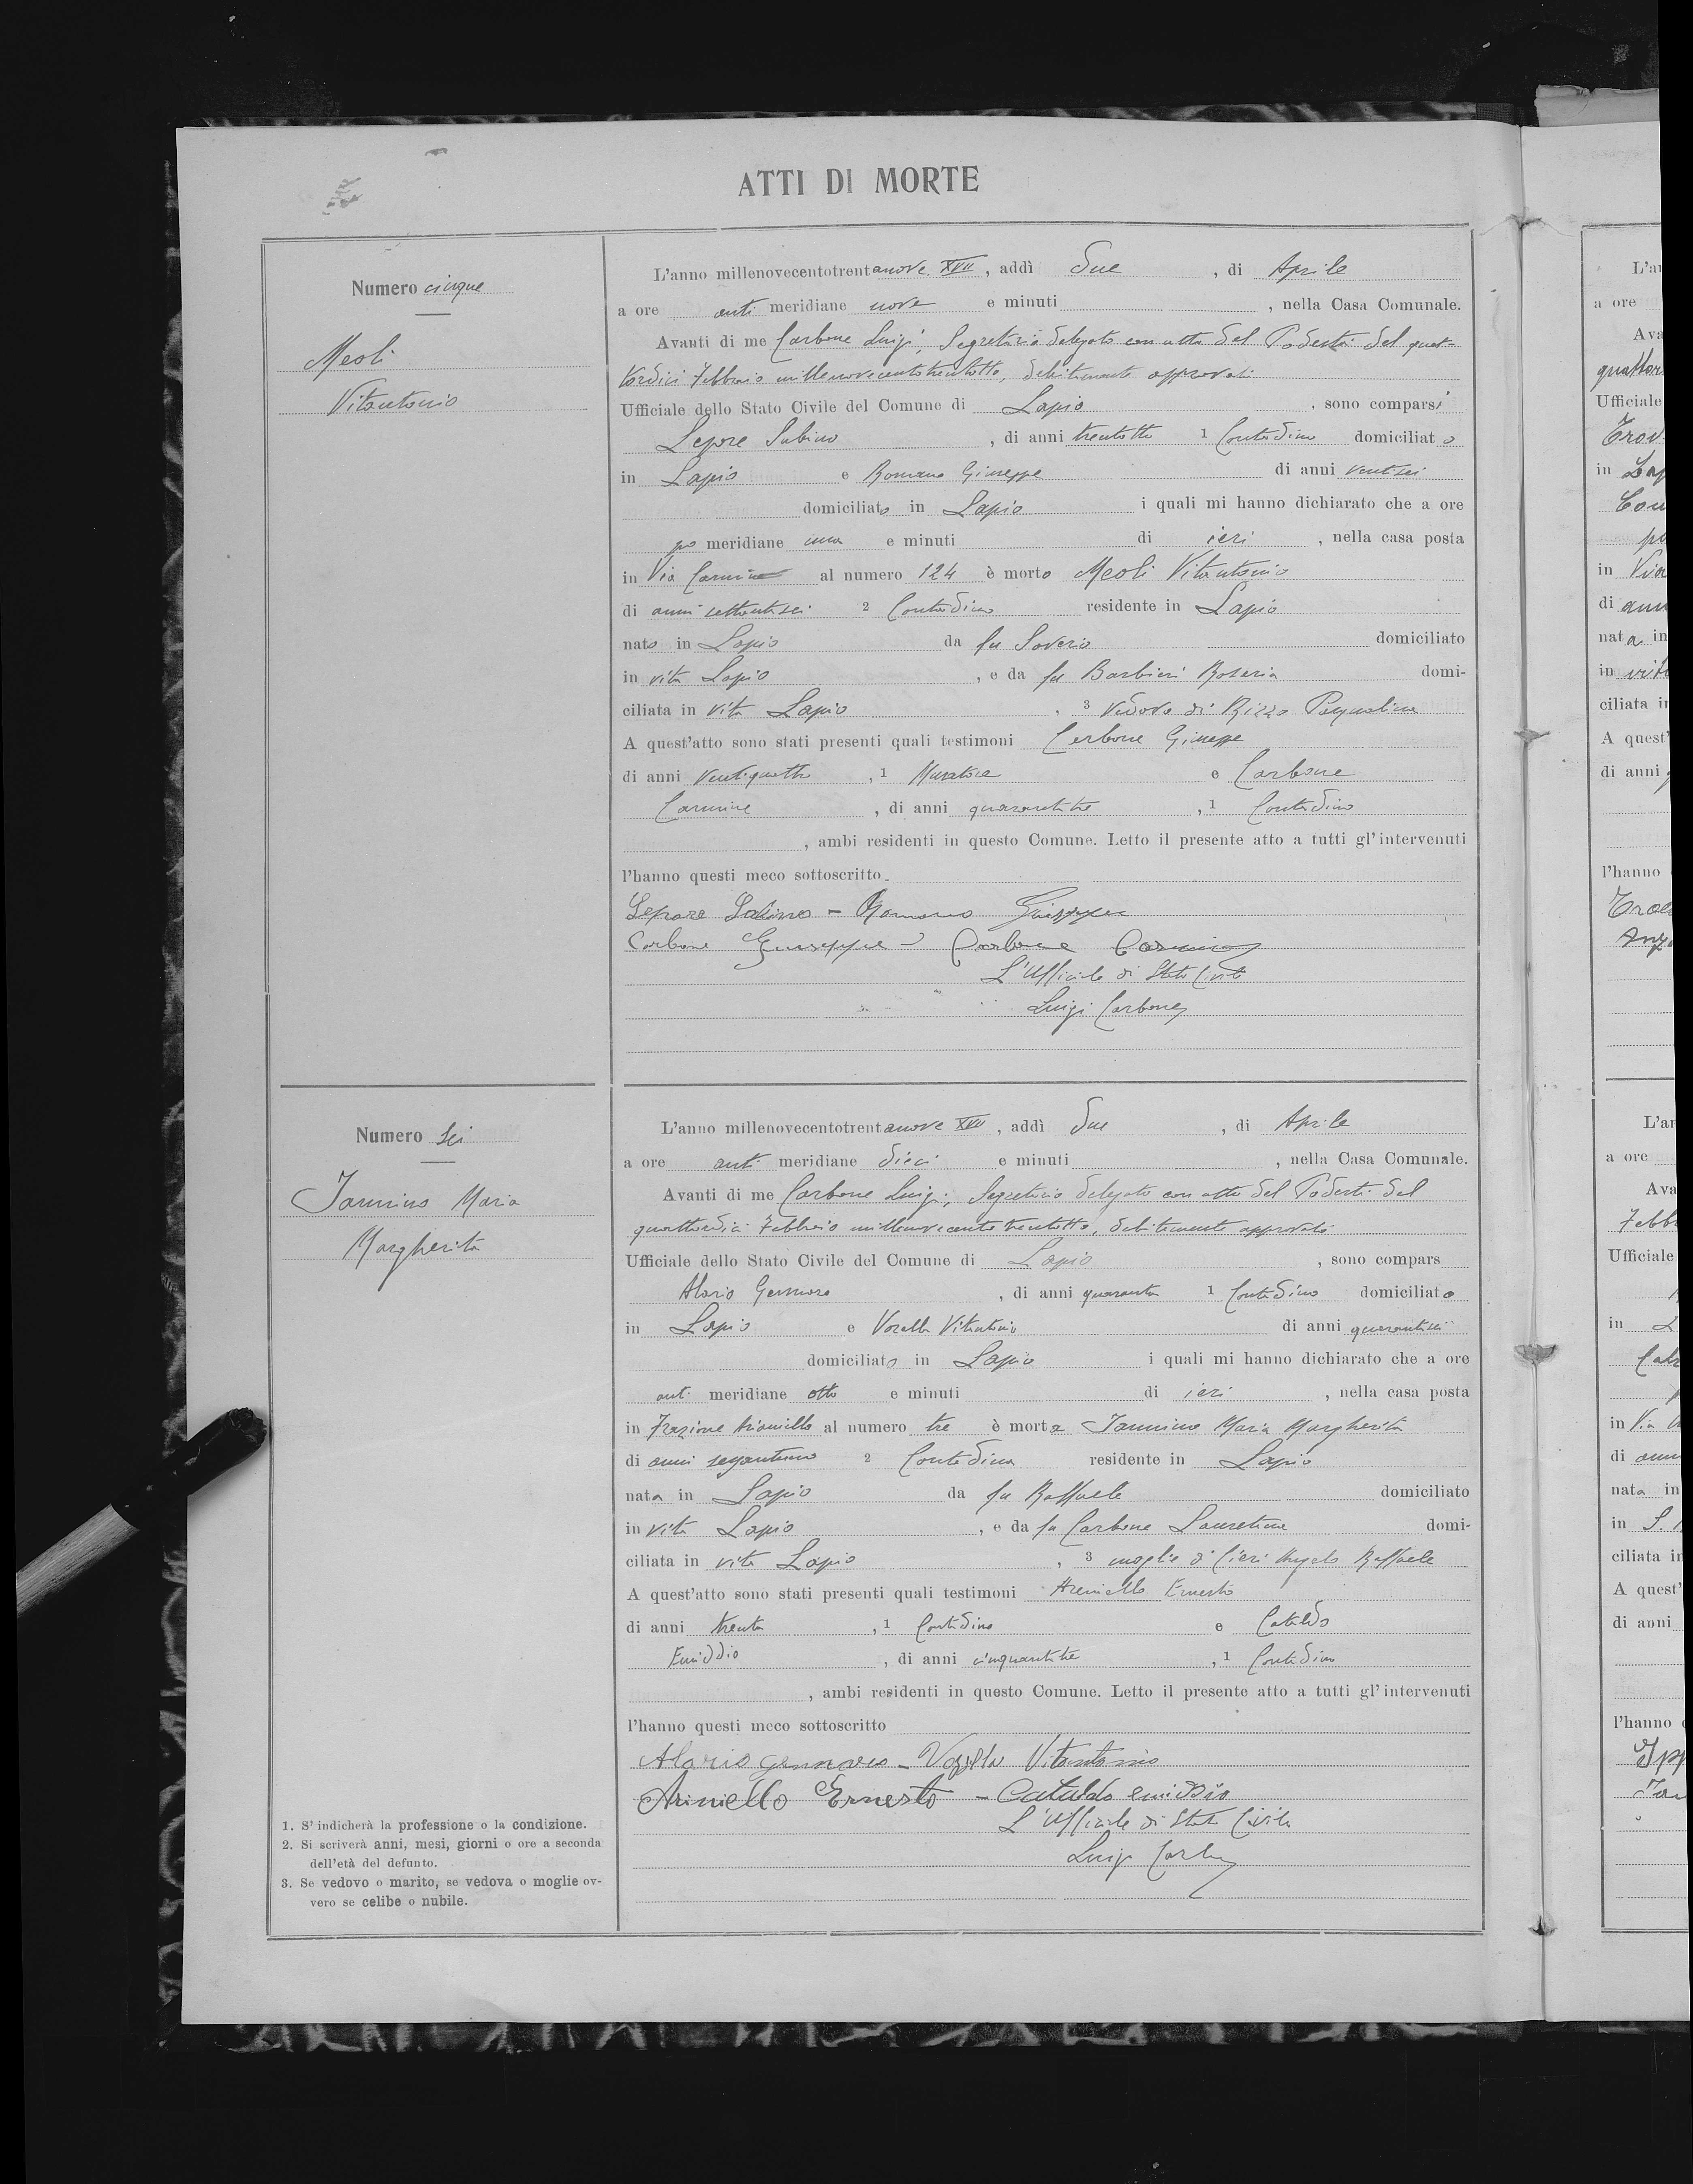 ATTI DI MORTE
Numero cinque
Meoli
Vitantonio
L'anno millenovecentotrentanove XVII, addì due, di Aprile
a ore anti meridiane nove e minuti, nella Casa Comunale.
Avanti di me Carbone Luigi, Segretario delegato con atto del Podestà del quat-
tordici Febbraio millenovecentotrentotto, debitamente approvato
Ufficiale dello Stato Civile del Comune di Lapio, sono comparsi
Lepore Sabino, di anni trentotto 1 Contadino domiciliato
in Lapio e Romano Giuseppe di anni ventisei
domiciliato in Lapio i quali mi hanno dichiarato che a ore
po meridiane una e minuti di ieri, nella casa posta
in Via Carmine al numero 124 è morto Meoli Vitantonio
di anni settantasei 2 Contadino residente in Lapio
nato in Lapio da fu Saverio domiciliato
in vita Lapio, e da fu Barbieri Rosaria domi-
ciliata in vita Lapio, 3 vedovo di Rizzo Pasqualina
A quest'atto sono stati presenti quali testimoni Carbone Giuseppe
di anni ventiquattro, 1 Muratore e Carbone
Carmine, di anni quarantatre, 1 Contadino
, ambi residenti in questo Comune. Letto il presente atto a tutti gl'intervenuti
l'hanno questi meco sottoscritto.
Lepore Sabino - Romano Giuseppe
Carbone Giuseppe - Carbone Carmine
L'Ufficiale di Stato Civile
Luigi Carbone
Numero sei
Iannino Maria
Margherita
L'anno millenovecentotrentanove XVII, addì due, di Aprile
a ore anti meridiane dieci e minuti, nella Casa Comunale.
Avanti di me Carbone Luigi, Segretario delegato con atto del Podestà del
quattordici Febbraio millenovecentotrentotto, debitamente approvato
Ufficiale dello Stato Civile del Comune di Lapio, sono compars
Alario Gennaro, di anni quaranta 1 Contadino domiciliato
in Lapio e Vozella Vitantonio di anni quarantasei
domiciliato in Lapio i quali mi hanno dichiarato che a ore
anti meridiane otto e minuti di ieri, nella casa posta
in Frazione Arianiello al numero tre è morta Iannino Maria Margherita
di anni sessantuno 2 Contadina residente in Lapio
nata in Lapio da fu Raffaele domiciliato
in vita Lapio, e da fu Carbone Lauretana domi-
ciliata in vita Lapio, 3 moglie di Cieri Angelo Raffaele
A quest'atto sono stati presenti quali testimoni Ariniello Ernesto
di anni trenta, 1 Contadino e Cataldo
Emiddio, di anni cinquantatre, 1 Contadino
, ambi residenti in questo Comune. Letto il presente atto a tutti gl'intervenuti
l'hanno questi meco sottoscritto
Alario Gennaro - Vozella Vitantonio
Ariniello Ernesto - Cataldo Emiddio
L'Ufficiale di Stato Civile
Luigi Carbone
1. S'indicherà la professione o la condizione.
2. Si scriverà anni, mesi, giorni o ore a seconda
dell'età del defunto.
3. Se vedovo o marito, se vedova o moglie ov-
vero se celibe o nubile.